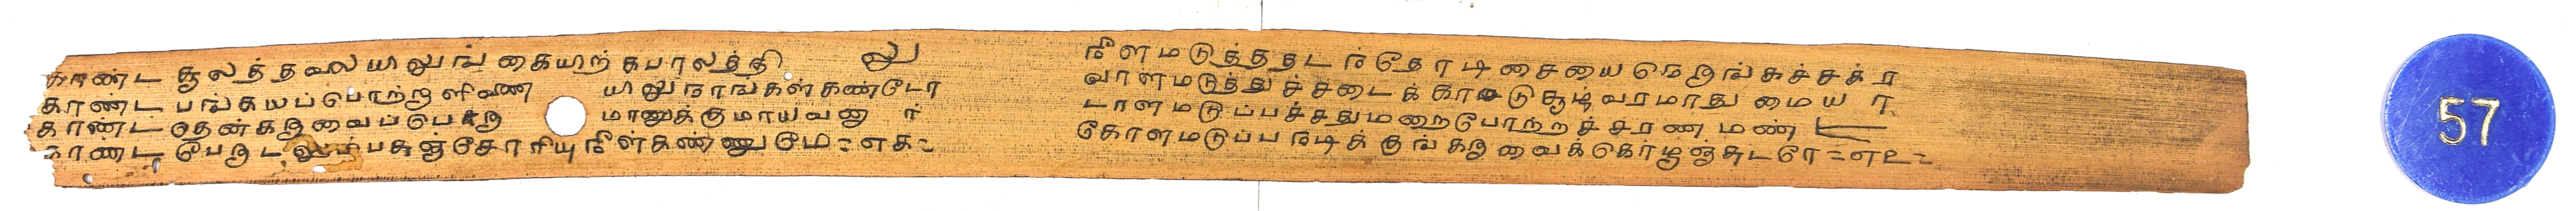 காண்ட சூலத்தலையாலுங் கையாற் கபாலத்தி லு
காண்ட பங்கயப்பொற்றளிவண யாலுநாங்கள்கண்டோ
காண்ட தென்கருவைப்பெரு மானுக்குமாயவனு ர்
காண்ட பேருட லும்பசுஞ்சோரியுநீள்கண்ணுமே எக
நீளமடுத்ததடந்தேரடிசையை நெருங்குச்சக்ர
வாளமடுத்துச்சடைக்காடுசூழ்வரமாது மைய ா
டாளமடுப்பச்சதுமறைபோற்றச் சரண மண்
கோளமடுப்பநடிக் குங்கருவைக்கொழுஞ்சுடரே எஉ
57